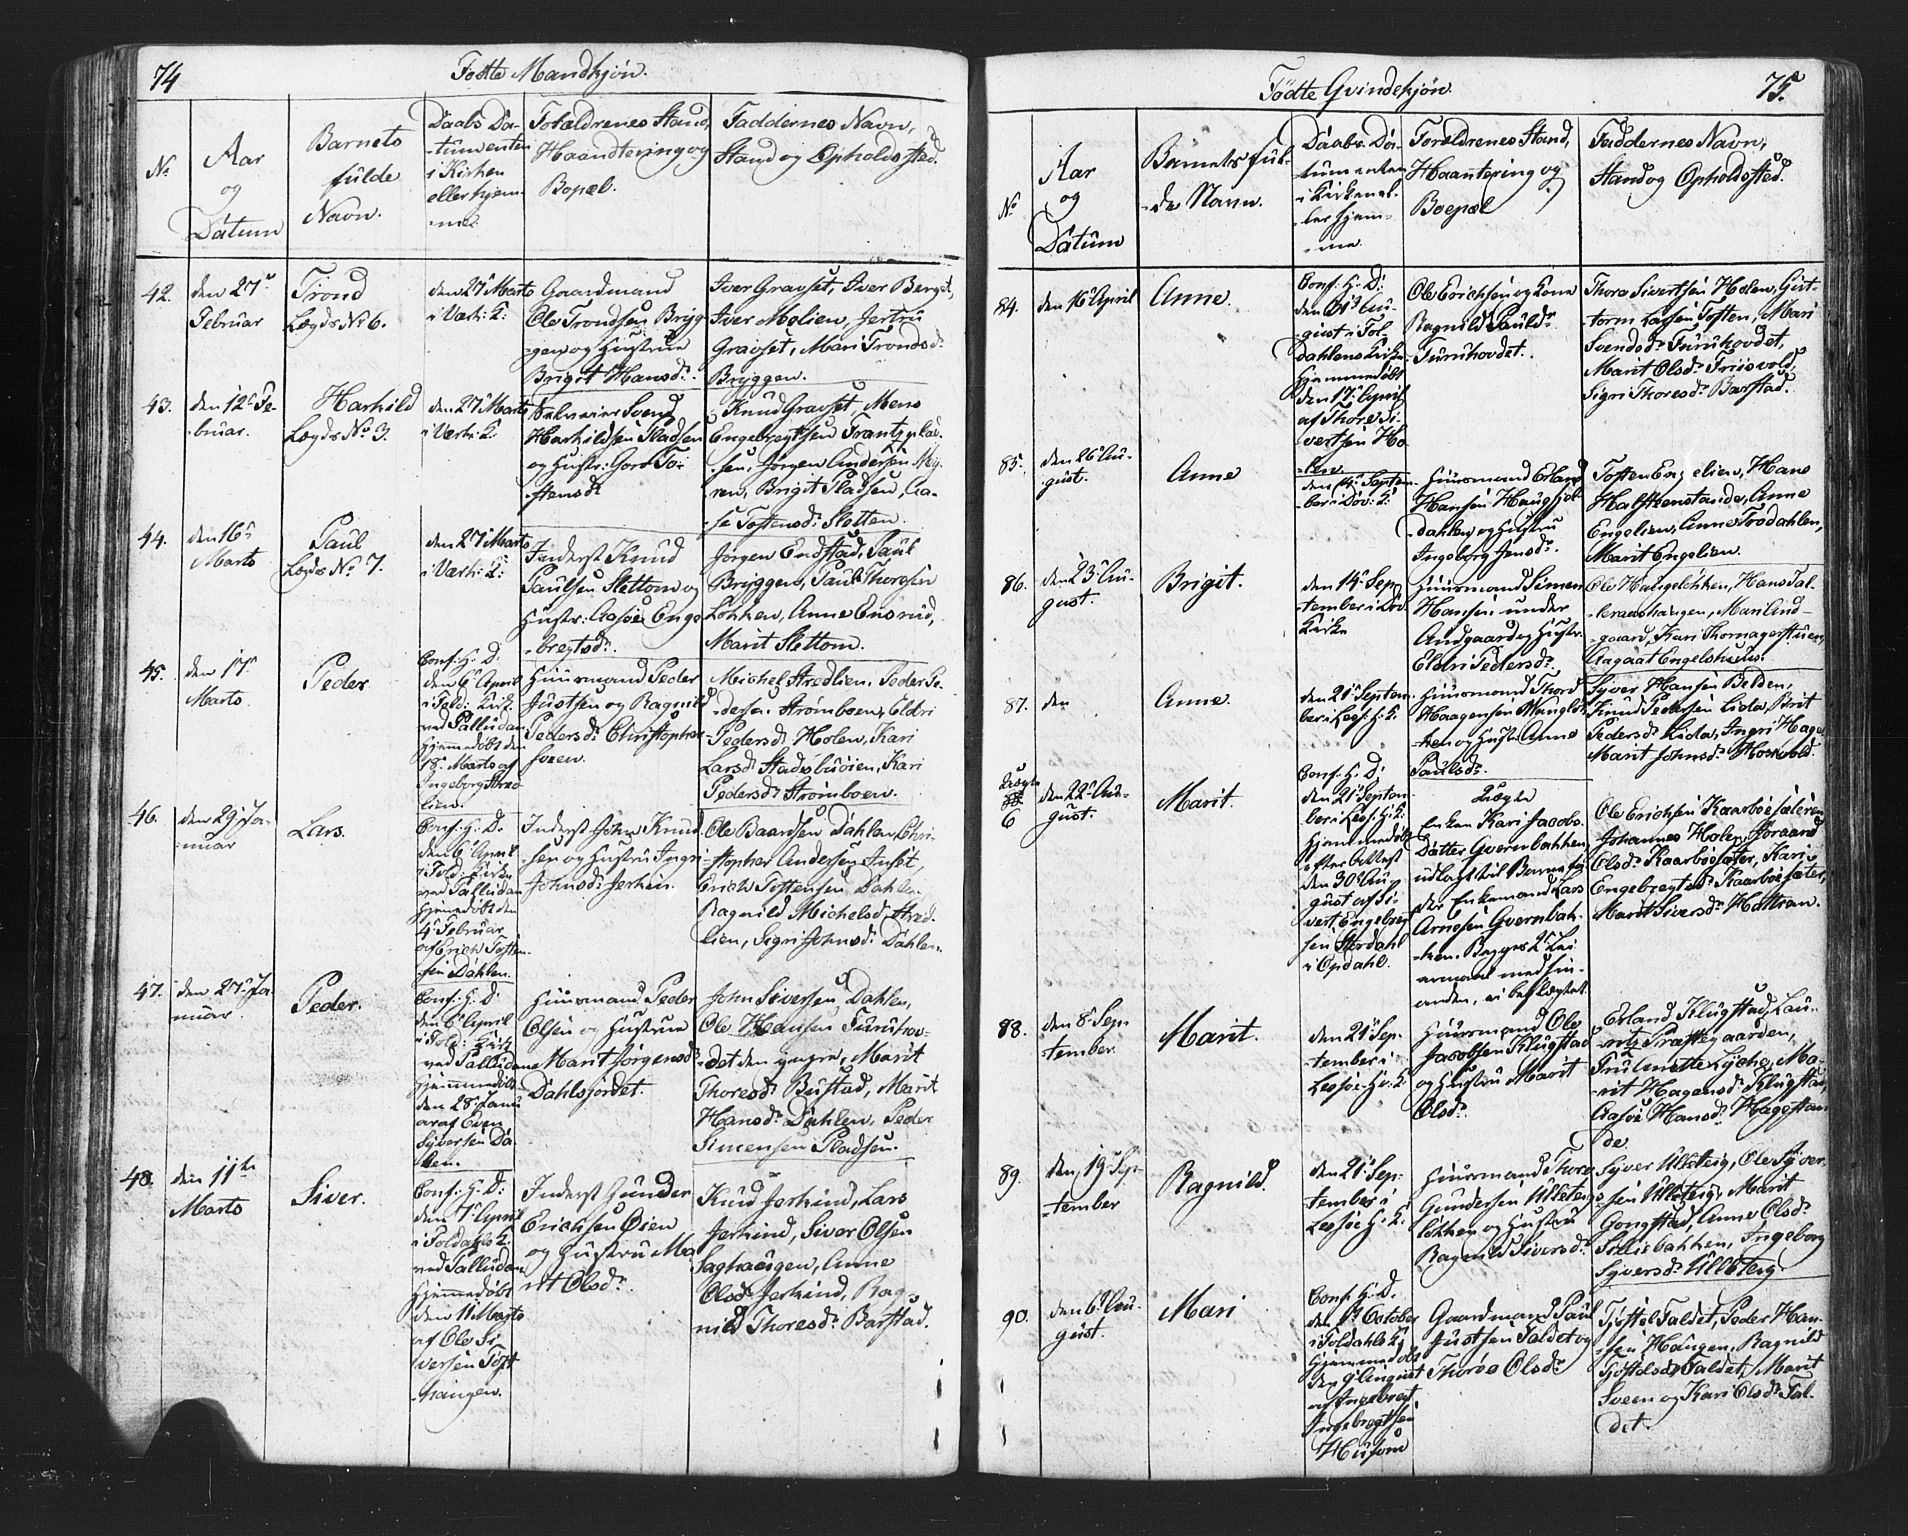 74
Fødte Mandkjøn.
No
Aar
og
Datum
Barnets
fulde
Navn.
Daabs Da-
-tum enten
i Kirken
eller hjem-
-me.
Forældrenes Stand,
Haandtering og
Bopæl.
Faddernes Navn,
Stand og Opholdssted.
42.
den 27de
Februar
Trond
Lægds No 6.
den 27 Marts
i Værk: K:
Gaardmand
Ole Trondsen Bryg-
-gen og Hustrue
Brigit Hansd:
Iver Gravset, Iver Berget,
Iver Molien, Jertru
Gravset, Mari Tronds-
Bryggen.
43.
den 12te Fe-
-bruar.
Harhild
Lægds No 3.
den 27 Marts
i Værk: K:
Svend
Harhildsen Pladsen
og Hustr: Goro To-
-stensd:
Knud Gravset, Mens
Engebregtsen Frantzplad-
-sen, Jørgen Andersen My-
-ren, Brigit Pladsen, Aa-
-se Tostensd: Sletten.
44.
den 16de
Marts
Paul
Lægds No 7.
den 27 Marts
i Værk: K:
Inderst Knud
Paulsen Slettom og
Hustr: Aasøe Enge-
-bregtsd:
Jørgen Endstad, Paul
Bryggen, Paul Thoresen
Løkken, Anne Ensrud,
Marit Slettom.
45.
den 17de
Marts
Peder
Conf: H: D:
den 6te April
i Fold: Kirk
ved Palludan
hjemedøbt den
18de Marts af
Ingeborg Stred-
-lien.
Huusmand Peder
Justsen og Ragnild
Pedersd: Christopher
-soen.
Michel Stredlien, Peder Pe-
-dersen Strømboen, Eldri
Pedersd: Holen, Kari
Larsd: Stadsbuøien, Kari
Pedersd: Strømboen.
46.
den 29de Ja-
-nuar
Lars.
Conf: H: D:
den 6te April
i Fold: Kirke
ved Palludan
hjemedøbt den
4de Februar
af Erich Tosten-
-sen Dahlen.
Inderst John Knud-
-sen og Hustru Ingri
Johnsd: Jerkin.
Ole Baardsen Dahlen, Chri-
-stopher Andersen Inset,
Erich Tostensen Dahlen
Ragnild Michelsd: Stred-
-lien, Sigri Johnsd: Dahlen.
47.
den 27de Ja-
nuar.
Peder.
Conf: H: D:
den 6te April
i Fold: Kirk
ved Palludan
hjemmedøbt
den 28de Janu
ar af Even
Syversen Da-
hlen.
Huusmand Peder
Olsen og Hustrue
Marit Jørgensd:
Dahlsjordet.
John Siversen Dahlen,
Ole Hansen Furuhov-
-det den yngre, Marit
Thoresd: Bustad, Marit
Hansd: Dahlen, Peder
Simensen Pladsen.
48.
den 11te
Marts
Siver.
Conf: H: D:
den 7de April
i Foldahls K:
ved Palludan
hjemedøbt
den 11 Marts
af Ole Si
versen Toft
haugen.
Inderst Gunder
Erichsen Øien
og Hustru Ma
rit Olsd:
Knud Jerkind, Lars
Jerkind, Siver Olsen
Saghaugen, Anne
Olsd: Jerkind, Rag-
nild Thoresd: Barstad.
75.
Fødte Qvindekjøn
No
Aar
og
Datum
Barnets ful-
-de Navn.
Daabs Da-
-tum enten
i Kirken el-
-ler hjem-
-me
Forældrenes Stand,
Haantering og
Boepæl
Faddernes Navn,
Stand og Opholdsted.
84.
den 16de April
Anne.
Conf: H: D:
den 31te Au-
-gust i Fol-
dahlens Kirke
hjemmedøbt
den 17de April
af Thore Si-
vertsen Ho-
-len
Ole Erichsen og Kone
Ragnild Pauldr:
Furuhovdet.
Thore Sivertsen Holen, Gut-
-torm Larsen Toften, Mari
Svendsd: Furuhovdet,
Marit Olsd: Friisvold,
Sigri Thoresd: Barstad.
85.
den 26de Au-
-gust.
Anne
den 14de Septem-
-ber i Dov: K:
Huusmand Erland
Hansen Haugsjor
dahlen og Hustru
Ingeborg Jensd:
Tosten Engelien, Hans
Halfstenstande, Anne
Engelien, Anne Trodahlen,
Marit Engelien.
86.
den 23de Au-
-gust.
Brigit.
den 14de Sep
-tember i Dov.
Kirke
Huusmand Simen
Hansen under
Andgaard og Hustr:
Eldri Pedersd:
Ole Haugeløkken, Hans Tal-
-leraashaugen, Mari And-
-gaard, Kari Thomagerstuen,
Aagaat Engelshuus.
87.
den
Anne.
den 21de Septem-
ber i Lesj: H: K:
Huusmand Thord
Haagensen
og Hustr: Anne
Paulsd:
Syver Hansen Belden,
Knud Pedersen Lida, Brit
Pedersd: Lida, Ingri Hage
Marit Johnsd: Moavold.
Uægte
6
den 22de Au-
-gust.
Marit.
Conf: H: D:
den 21de Septem
ber i Lesj: H: K:
hjemmedøbt
efter Attest
den 30te Au
gust af Si-
vert Engebregt
sen Stordahl
i Opdahl.
Uægte
Enken Kari Jacobs-
Datter Qvernbakken,
udlagt til Barnefa-
-der Enkemand Lars
Arnesen Qvernbak-
-ken. Begges 2de Lei
-ermaal med hin-
anden, ei beslægtet.
Ole Erichsen Kaarbøesæteren
Johannes Holen, Joraand
Olsd: Kaarbøesæter, Kari
Engebregtsd: Kaarbøesæter,
Marit Siversd: Hattran.
88.
den 8de Sep-
-tember
Marit.
den 21de Sep-
-tember i
Lesjoe H: K:
Huusmand Ole
Jacobsen Klugstad
og Hustru Marit
Olsd:
Erland Klugstad, Lau-
-rits Præstegaarden,
Fru Mette Lyche, Ma-
-rit Hagensd: Klugstad,
Aasøe Hansd: Hagestan
de
89.
den 19de Sep-
-tember
Ragnild.
den 21de Sep-
-tember i
Lesjoe H: K:
Huusmand Thore
Gundersen Ulleteig-
løkken og Hustru
Ragnild Siversd:
Syver Ulleteig, Ole Syver-
-sen Ulleteig, Marit
Gongstad, Anne Olsd:
Sollisbakken, Ingeborg
Syversd: Ulleteig
90.
den 6te Au-
-gust.
Mari
Conf: H: D.
den 1te October
i Foldahls K:
hjemmedøbt
den 9de August
af Ingebregt
Ingebregtsen
Husom
Gaardmand Paul
Justsen Faldet og
Thorøe Olsd:
Tjøstel Faldet, Peder Han-
-sen Haugen, Ragnild
Tjøstelsd: Faldet, Marit
Sveen og Kari Olsd: Fal-
det.